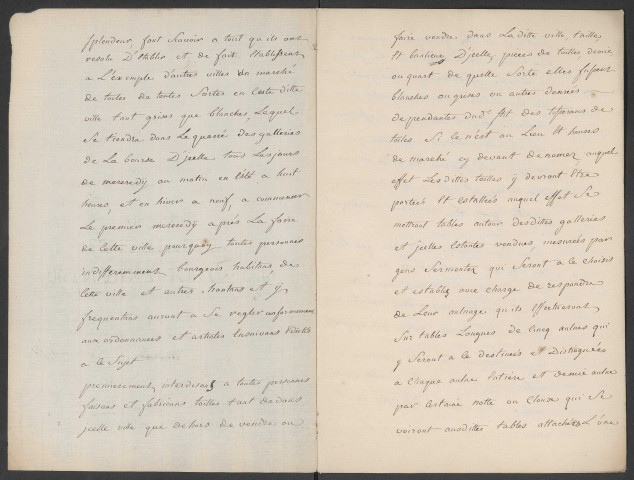 Splendeur, font scavoir a tout qu'ils ont
resolu D'Etablir et de fait Etablissent
a L'exemple d'autres villes un marché
de toiles de toutes Sortes en Cette ditte
ville tant grises que blanches, Lequel
Se tiendra dans Le quarré des galleries
de La bourse D'jcelle tous Les jours
de mercredÿ au matin en Eté a huit
heures, et en hiver a neuf, a commencer
Le premier mercredÿ après La foire
de Cette ville pourquoÿ toutes personnes
indifferemment bourgeois habitans, de
Cette ville et autres hantans et ÿ
frequentans auront a Se regler conformement
aux ordonnances et articles Ensuivans
a Ce Sujet
premierement, interdisons a toutes personnes
faisans et fabricans toilles tant dedans
jcelle ville que dehors de vendre ou
faire vendre dans La ditte ville, taille
Et banlieue D'jcelle, pieces de toilles demie
ou quart de quelle Sorte elles fussent
blanches ou grises ou autres denrées
dependantes dudt. stil des tisserans de
toiles Si ce n'est au Lieu Et heures
de marché cÿ devant denomez auquel
effet Lesdittes toilles ÿ devront Etre
portées Et estallées auquel effet Se
mettront tables autour desdittes galleries
et jcelles Estantes vendues, mesurées par
gens Sermentez qui Seront a ce choisis
et establis avec charge de respondre
de Leur aulnage qu'ils Effectueront
Sur tables Longues de Cincq aulnes qui
ÿ Seront a ce destinées et Distinguées
a Chaque aulne Entiere et demie aulne
par Certaine notte ou Cloux qui Se
voiront ausdittes tables attachées L'une